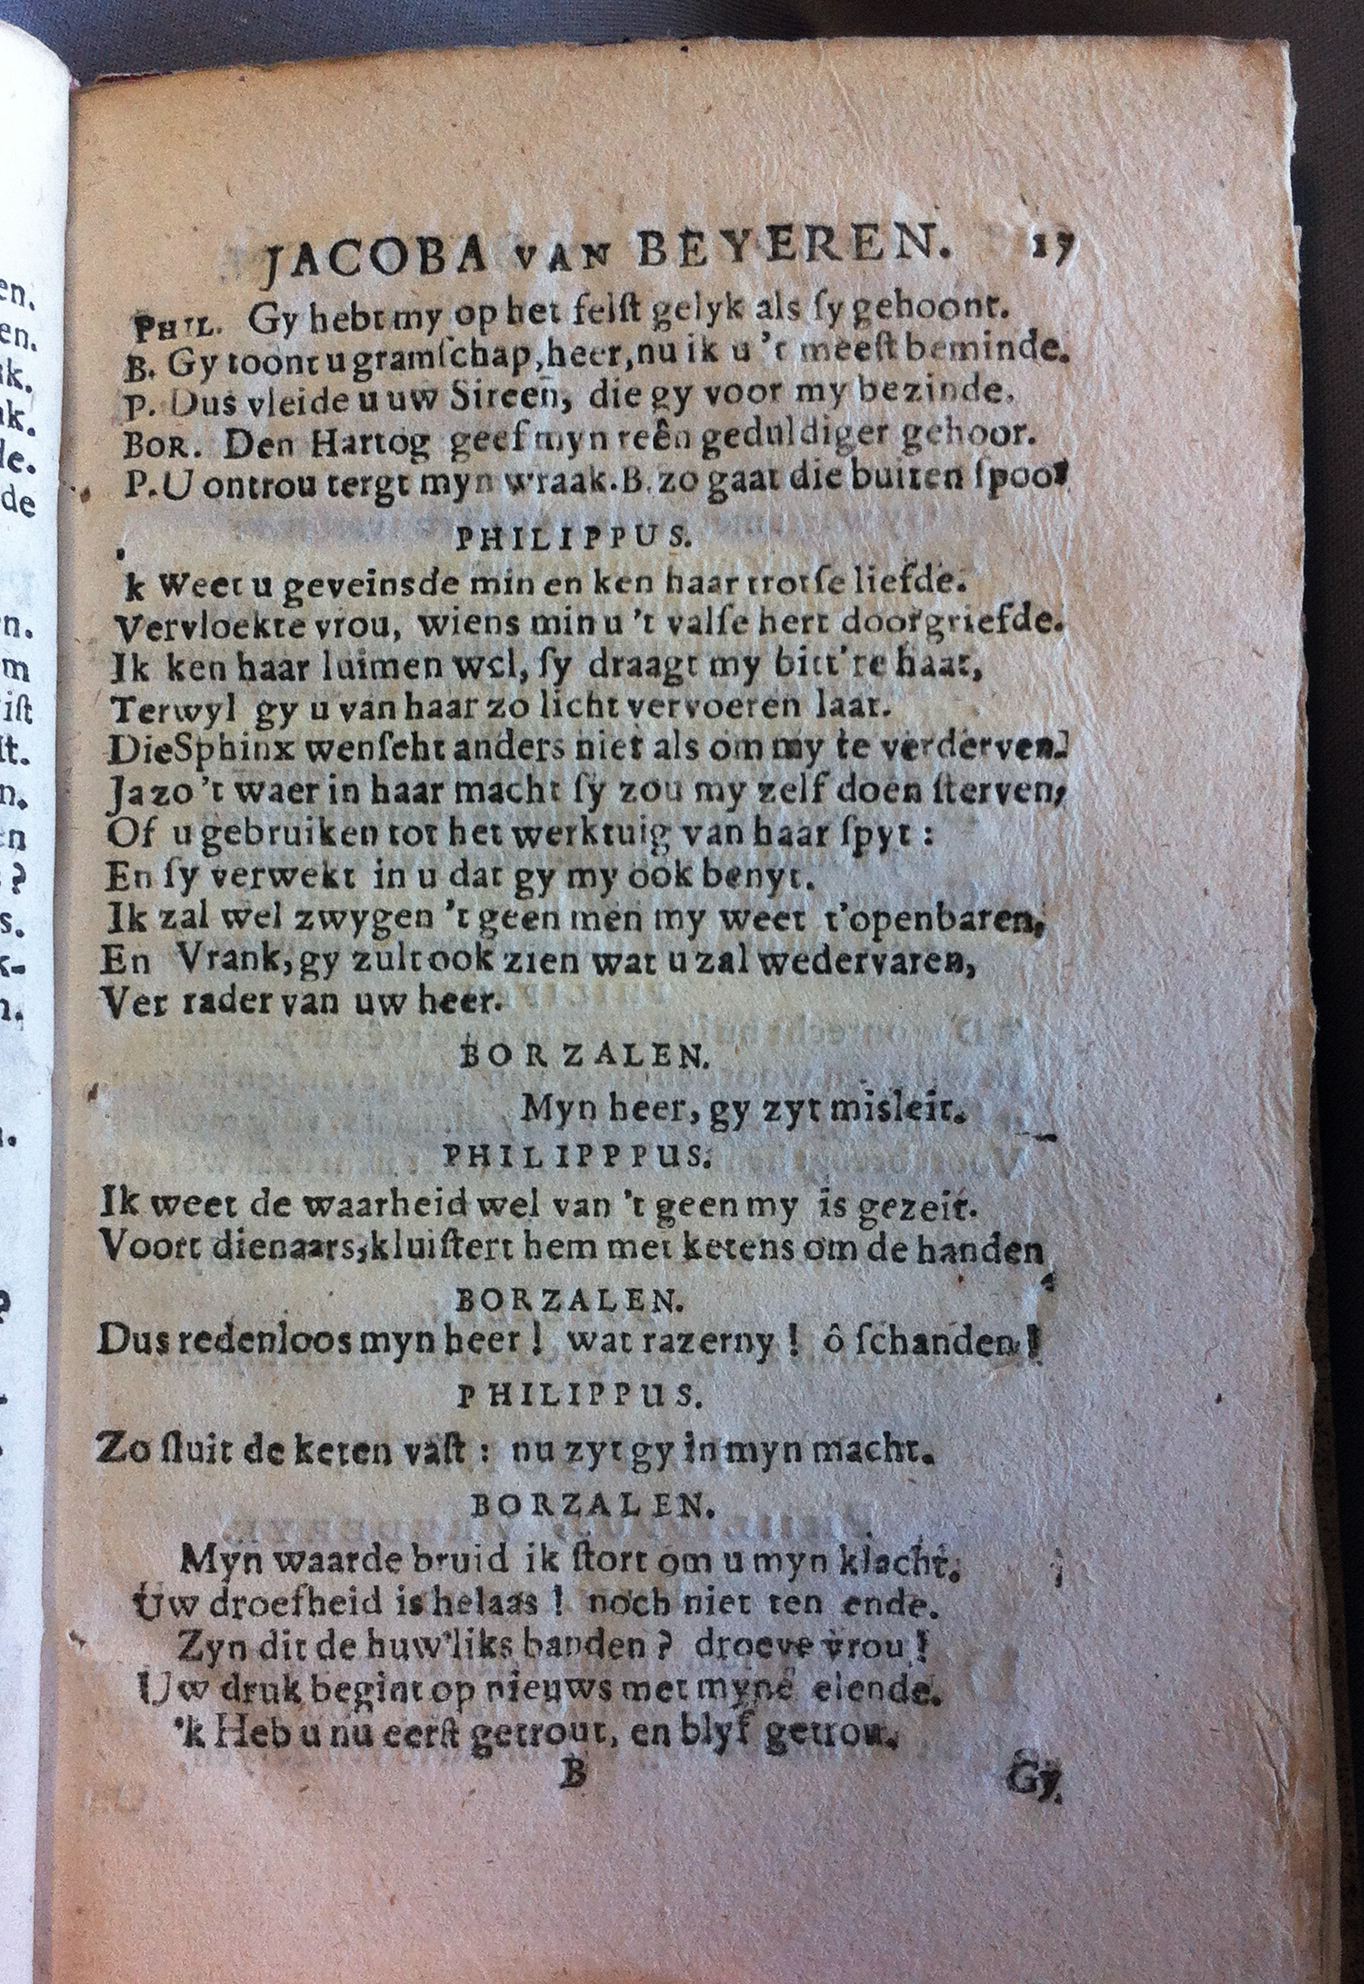 JACOBA VAN BEYEREN. 17
PHIL. Gy hebt my op het felſt gelyk als ſy gehoont.
B. Gy toont u gramſchap, heer, nu ik u 't meeſt beminde.
P. Dus vleide u uw Sireen, die gy voor my bezinde.
BOR. Den Hartog geef myn reên geduldiger gehoor.
P. U ontrou tergt myn wraak. B. zo gaat die buiten ſpoor
PHILIPPUS.
'k Weet u geveinsde min en ken haar trotſe liefde.
Vervloekte vrou, wiens min u 't valſe hert doorgriefde.
Ik ken haar luimen wel, ſy draagt my bitt're haat,
Terwyl gy u van haar zo licht vervoeren laat.
Die Sphinx wenſcht anders niet als om my te verderven.
Ja zo 't waer in haar macht ſy zou my zelf doen ſterven,
Of u gebruiken tot het werktuig van haar ſpyt:
En ſy verwekt in u dat gy my ook benyt.
Ik zal wel zwygen 't geen men my weet t'openbaren,
En Vrank, gy zult ook zien wat u zal wedervaren,
Ver rader van uw heer.
BORZALEN.
Myn heer, gy zyt misleit.
PHILIPPPUS.
Ik weet de waarheid wel van 't geen my is gezeit.
Voort dienaars, kluiſtert hem met ketens om de handen
BORZALEN.
Dus redenloos myn heer! wat razerny! ô ſchanden!
PHILIPPUS.
Zo ſluit de keten vaſt: nu zyt gy in myn macht.
BORZALEN.
Myn waarde bruid ik ſtort om u myn klacht.
Uw droefheid is helaas! noch niet ten ende.
Zyn dit de huw'liks banden? droeve vrou!
Uw druk begint op nieuws met myne elende.
'k Heb u nu eerſt getrout, en blyf getrou.
B Gy